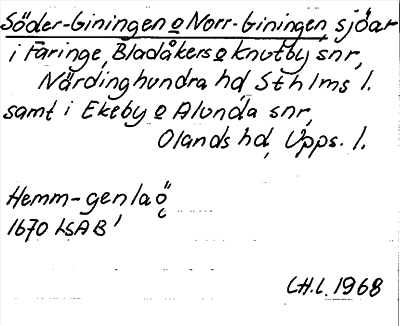 Söder-Giningen o Norr-Giningen, sjöar
i Faringe, Bladåkers o Knutby snr,
Närdinghundra hd, Sthlms l.
samt i Ekeby o Alunda snr,
Olands hd, Upps. l.
Hemm-genlaö
1670 LSA B1
CH.L. 1968